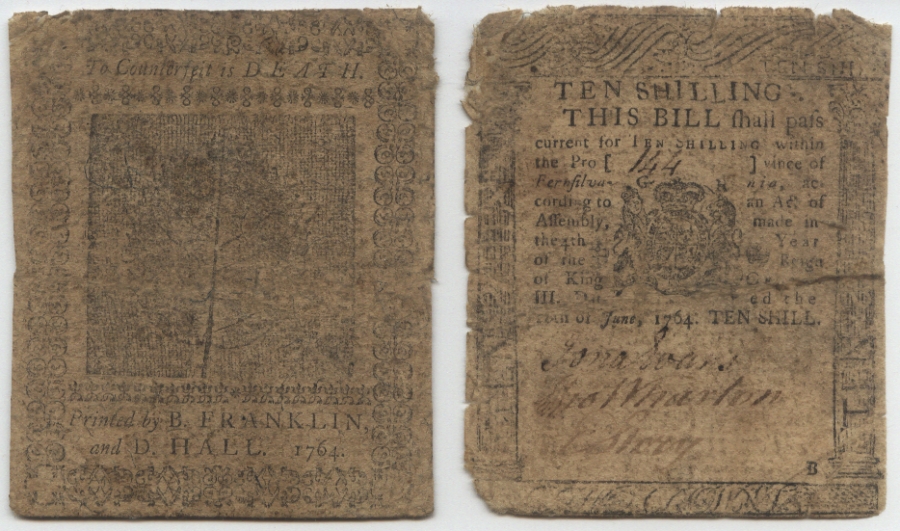 To Counterfeit is DEATH.
Printed by B. FRANKLIN,
and D. HALL. 1764.
TEN SHILLING
THIS BILL shall pass
current for TEN SHILLING within
the Pro [ 144 ] vince of
Pennsilva- G nia, ac-
cording to an Act of
Assembly, made in
the 4th Year
of the Reign
of King
III. Da ed the
of June, 1764. TEN SHILL.
Jona Evans
Wharton
Story
B